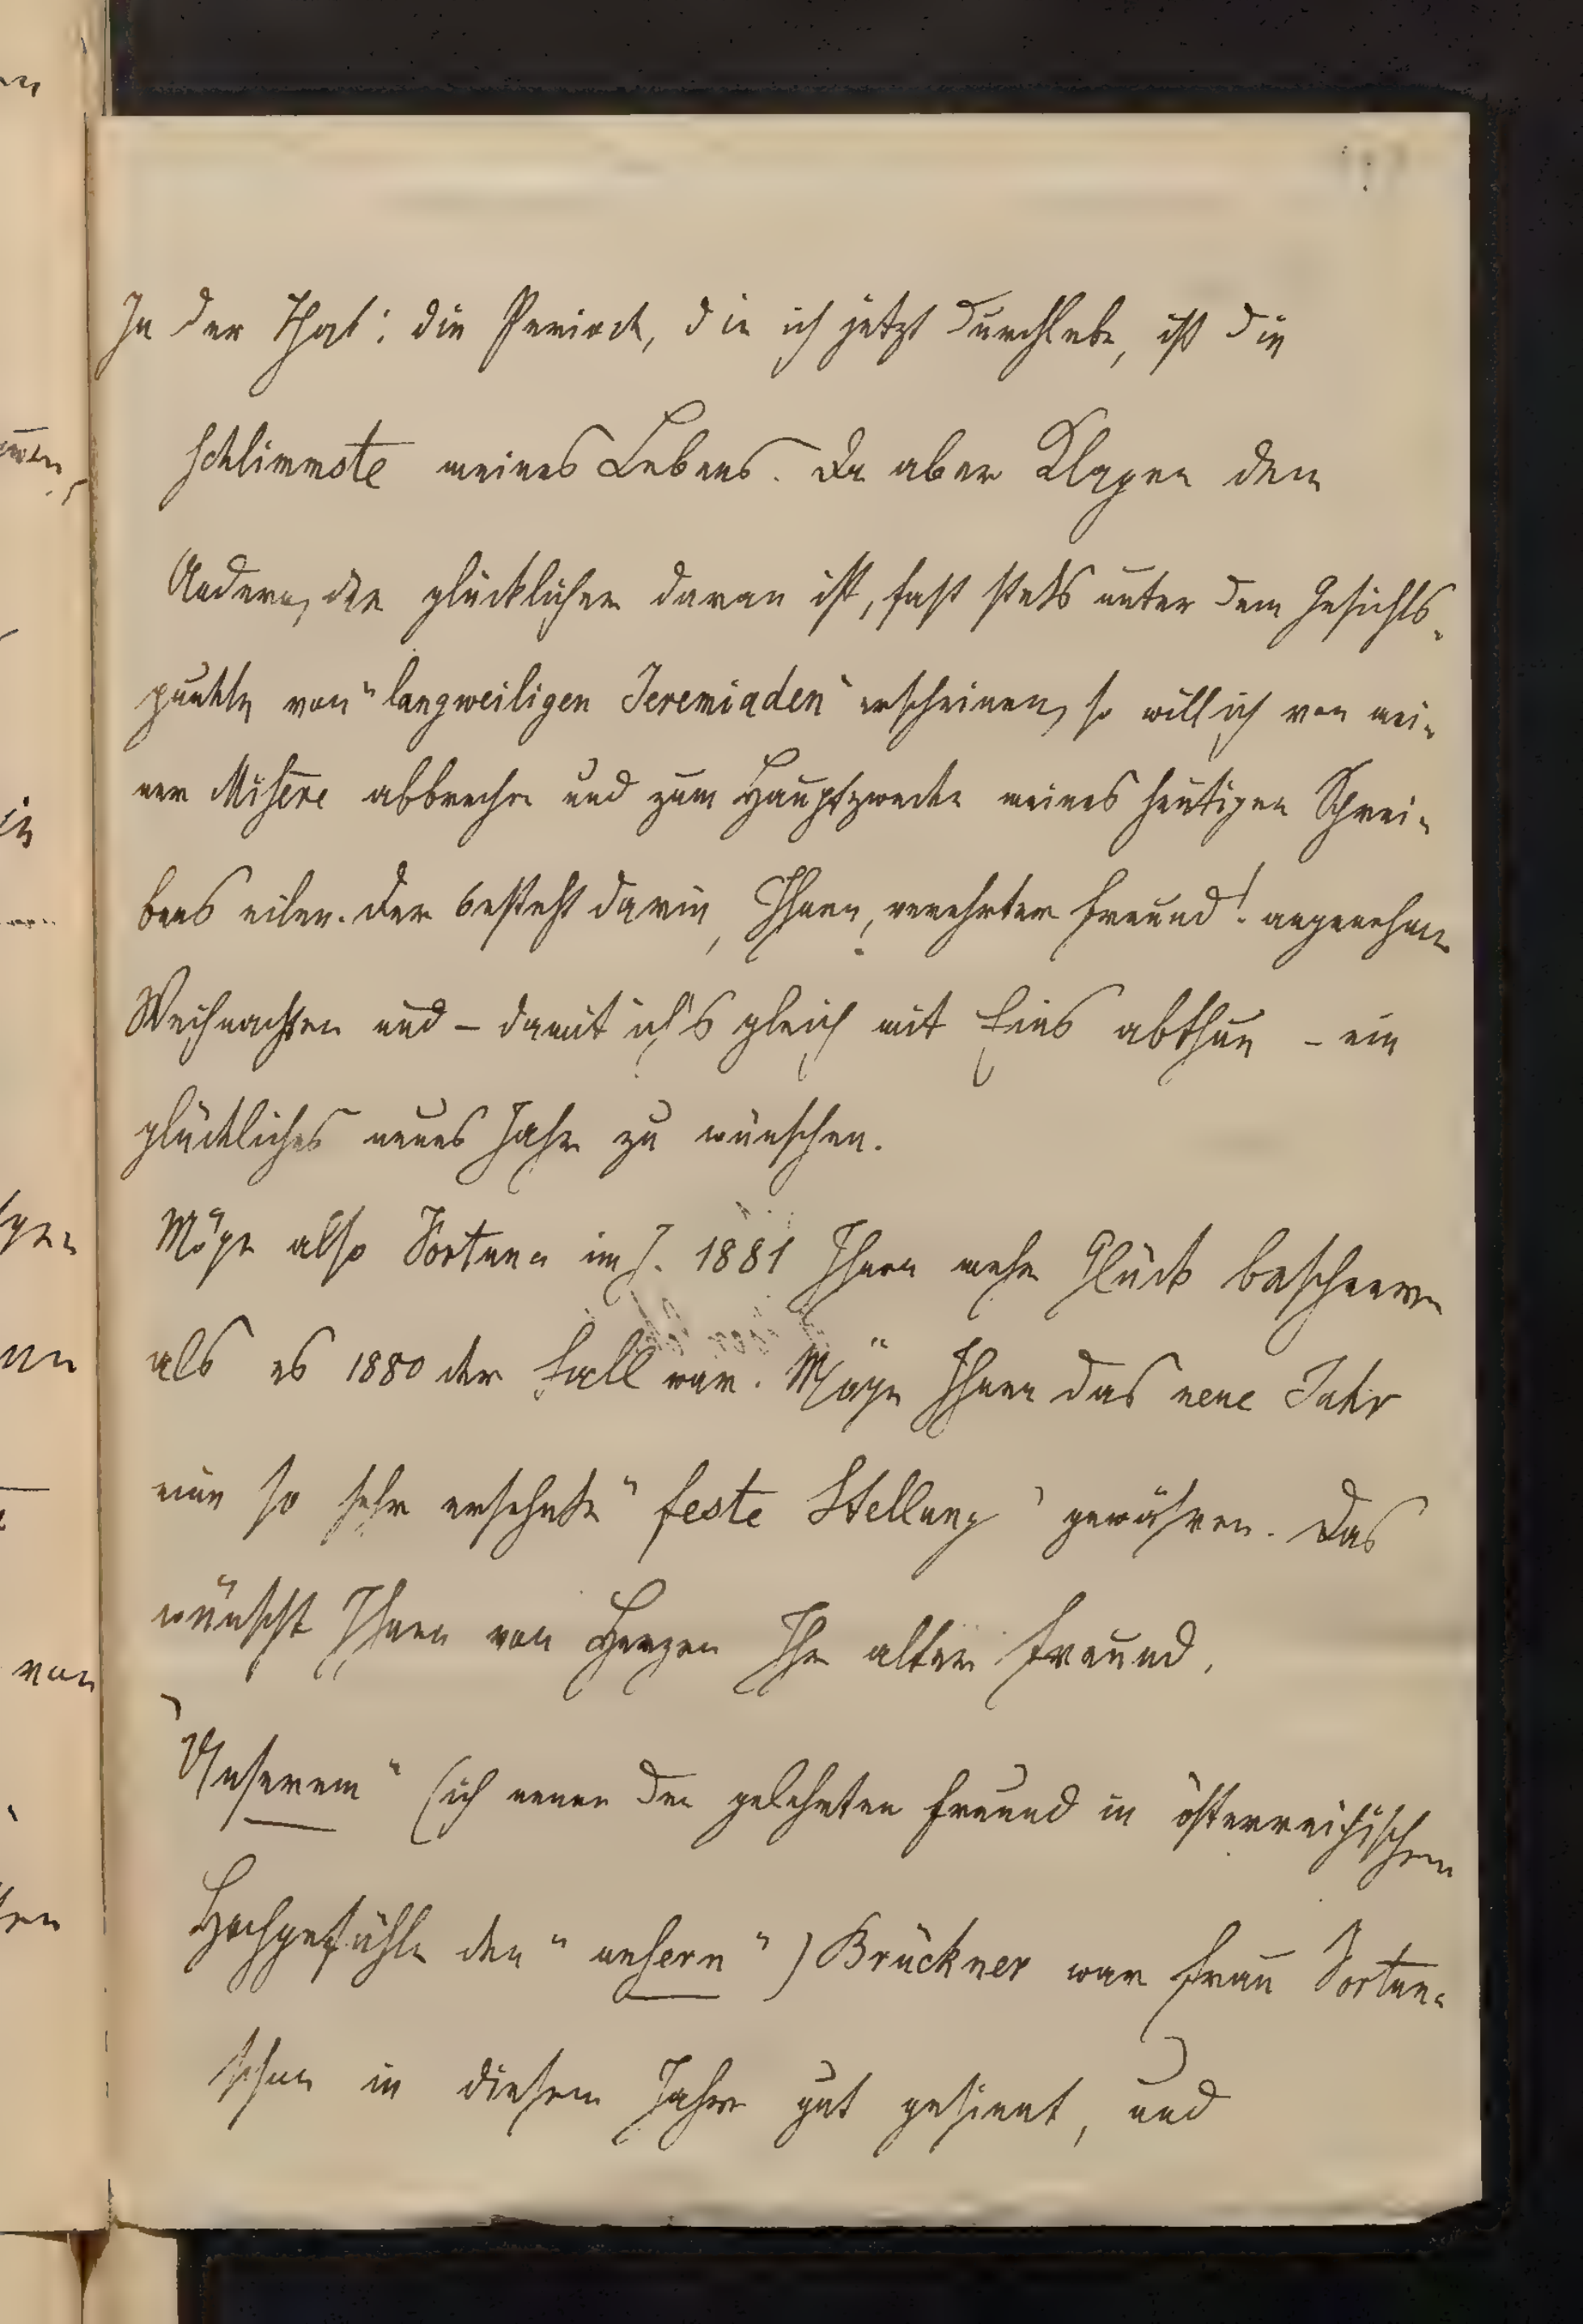 In der That: die Periode, die ich jetzt durchlebe, ist die
schlimmste meines Lebens. Da aber Klagen dem
Andern, der glücklicher daran ist, fast stets unter dem Gesichts-
punkte von "langweiligen Jeremiaden" erscheinen, so will ich von mei-
ner Misère abbrechen und zum Hauptzwecke meines heutigen Schrei-
bens eilen. Der besteht darin, Ihnen, verehrter Freund! angenehme
Weihnachten und – damit ich's gleich mit Eins abthue – ein
glückliches neues Jahr zu wünschen.
Möge also Fortuna im J. 1881 Ihnen mehr Glück bescheeren
als es 1880 der Fall war. Möge Ihnen das neue Jahr
eine so sehr ersehnte "feste Stellung" gewähren. Das
wünscht Ihnen von Herzen Ihr alter Freund.
"Unserem" (ich nenne den gelehrten Freund in österreichischem
Hochgefühle den "unsern") Brückner war Frau Fortuna
schon in diesem Jahre gut gesinnt, und